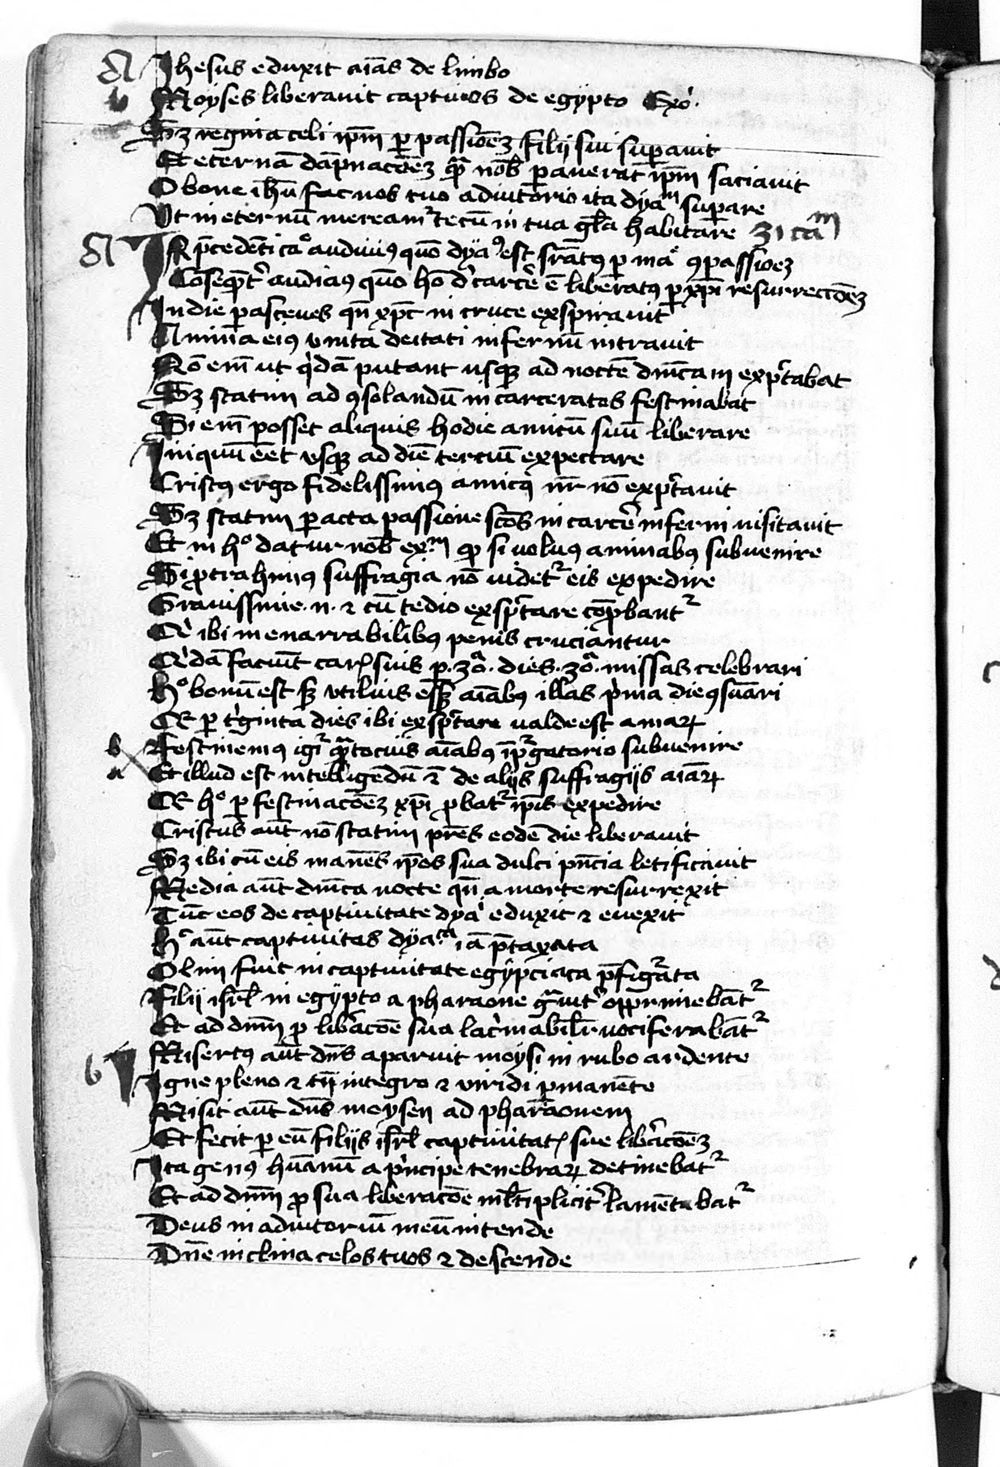 Jhesus eduxit aīas de limbo
Moyses liberavit captivos de egypto Exo.
Sꝫ regina celi ip̄m ꝑ passiōeꝫ filij sui suꝑavit
Et eternā dāpnacōeꝫ qͣ nob̄ paverat ip̄m saciavit
O bone ih̄u fac nos tuo adiutorio ita dyaᵐ suꝑare
Ut in eternū mereamᷣ tecū in tua gl̄a habitare 31 caᵐ
In p̄cedēti caᵒ audiviꝰ quō dyaꝰ est sꝑatꝰ ꝑ maᵉ ꝯpassiōeꝫ
Cōseqͣt᷑ audiaꝰ quō hō d̓ carcē ē liberatꝰ ꝑ xp̄i resurrecc̄oēꝫ
In die parasceves qn̄ xp̄c in cruce exspiravit
Anima eiꝰ unita deitati infernū intravit
Nō em̄ ut qͥdā putant usqꝫ ad noctē dn̄icam exp̄ctabat
Sꝫ statim ad ꝯsolandū incarceratos festinabat
Si em̄ posset aliquis hodie amicū suū liberare
Iniquū eēt usqꝫ ad diē terciū expectare
Cristꝰ ergo fidelissimꝰ amicꝰ nr̄ nō exp̄ctavit
Sꝫ statim ꝑacta passione sc̄os in carcē inferni visitavit
Et in hᵒ datur nob̄ exᵐ qꝫ si volūꝰ animabꝰ subvenire
Si ꝓtrahimꝰ suffragia nō videtᷣ eis expedire
Gravissime .n. ⁊ cū tedio exspctare cōꝓbantᷣ
Qͥ ibi inenarrabilibꝰ penis cruciantur
Qͥdā faciūt caris suis ꝑ .30ᵃ. dies .30ᵃ. missas celebrari
Hᵒ bonū est sꝫ utilius esꝫ aīabꝰ illas pͥma die ꝯsūari
Qꝫ ꝑ tͥginta dies ibi exspctare valde est amaꝝ
Festinemꝰ igᷣ qͣtocius aīabꝰ ī pᷣgatorio subvenire
Et illud est intelligēdū ⁊ de alijs suffragijs aīaꝝ
Qꝫ hᵒ ꝑ festinacōeꝫ xp̄i ꝓbatᷣ ip̄is expedire
Cristus aūt nō statim pr̄es eodē die liberavit
Sꝫ ibi cū eis manēs ip̄os sua dulci pn̄cia letificavit
Media aūt dn̄ica nocte qn̄ a morte resurrexit
Tūc eos de captivitate dyaͥ eduxit ⁊ evexit
Hᵉ aūt captivitas dyaᶜᵃ iā p̄taxata
Olim fuit in captivitate egypciaca p̄figͣta
Filij isr̄l in egypto a pharaone gͣvit᷑ oppͥmebātᷣ
Et ad dn̄m ꝓ libᷣacōe sua lacͥmabilit᷑ vociferabātᷣ
Misertꝰ aūt dn̄s aparuit moysi in rubo ardente
Igne pleno ⁊ tn̄ integro ⁊ viridi ꝑmanēte
Misit aūt dn̄s moysen ad pharaonem
Et fecit ꝑ eū filijs isr̄l captivitatꝭ sue libᷣacōeꝫ
Ita genꝰ hūanū a pͥncipe tenebraꝝ detinebatᷣ
Et ad dn̄m ꝓ sua liberacōe ml̄tiplicit᷑ lamētabatᷣ
Deus in adiutoriū meū intende
Dn̄e inclina celos tuos ⁊ descende